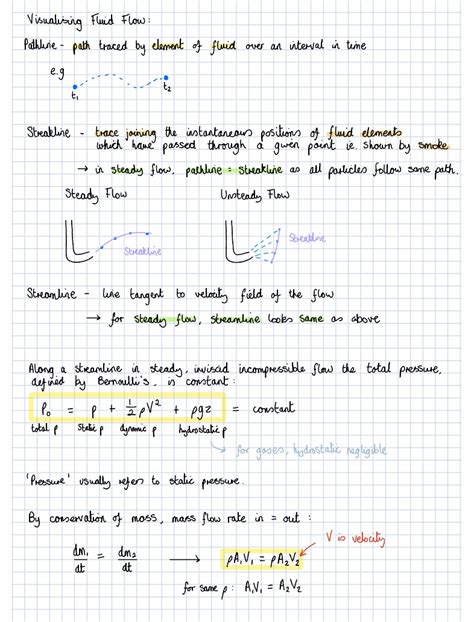 Visualising Fluid Flow:
Pathline - path traced by element of fluid over an interval in time
e.g
t₁ t₂
Streakline - trace joining the instantaneous positions of fluid elements
which have passed through a given point ie. shown by smoke
→ in steady flow, pathline = streakline as all particles follow same path.
Steady Flow Unsteady Flow
Streakline Streakline
Streamline - line tangent to velocity field of the flow
→ for steady flow, streamline looks same as above
Along a streamline in steady, inviscid incompressible flow the total pressure,
defined by Bernoulli's, is constant:
P₀ = p + 1/2 ρV² + ρgz = constant
total p static p dynamic p hydrostatic p
↳ for gases, hydrostatic negligible
'Pressure' usually refers to static pressure.
By conservation of mass, mass flow rate in = out :
V is velocity
dm₁/dt = dm₂/dt → ρA₁V₁ = ρA₂V₂
for same ρ : A₁V₁ = A₂V₂